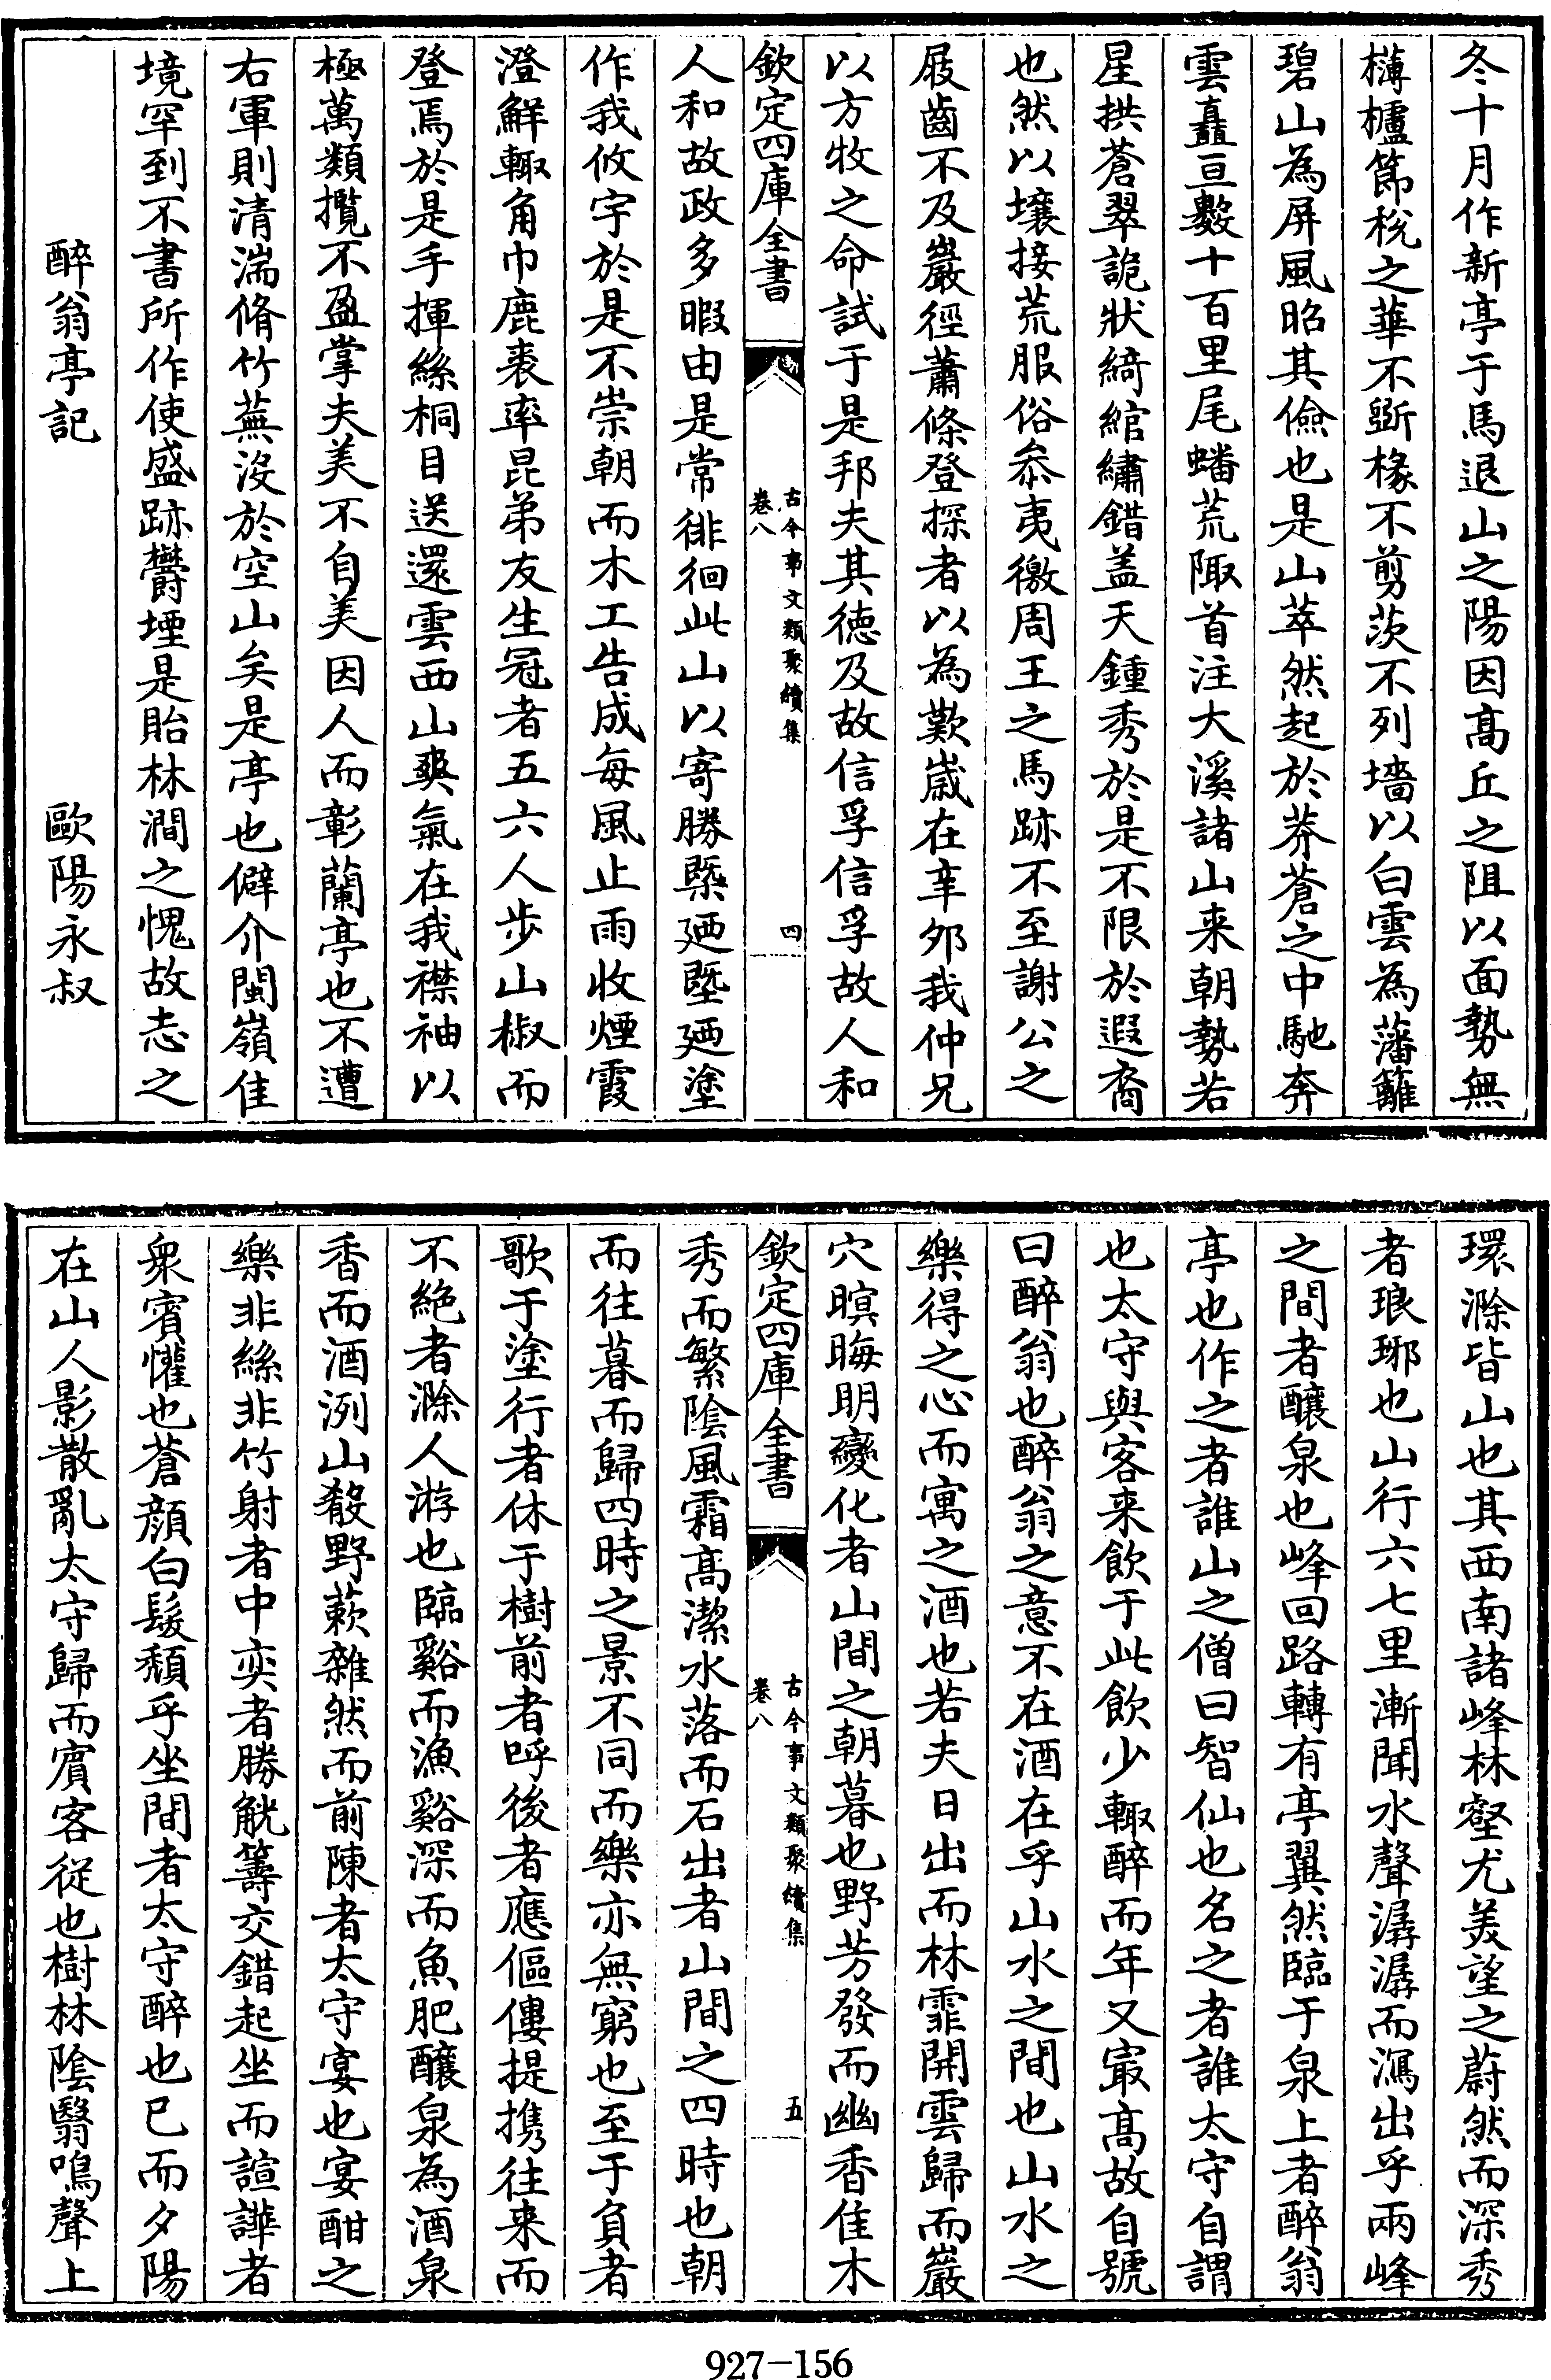 冬十月作新亭于馬退山之陽因髙丘之阻以面勢無
欂櫨節梲之華不斵椽不剪茨不列墻以白雲為藩籬
碧山為屏風昭其儉也是山萃然起於莽蒼之中馳奔
雲矗亘數十百里尾蟠荒陬首注大溪諸山来朝勢若
星拱蒼翠詭狀綺綰繡錯盖天鍾秀於是不限於遐裔
也然以壤接荒服俗叅夷徼周王之馬跡不至謝公之
屐齒不及巖徑蕭條登探者以為歎嵗在辛夘我仲兄
以方牧之命試于是邦夫其徳及故信孚信孚故人和
欽定四庫全書
古今事文類聚續集
卷八
四
人和故政多暇由是常徘徊此山以寄勝槩廼塈廼塗
作我攸宇於是不崇朝而木工告成每風止雨收煙霞
澄鮮輙角巾鹿裘率昆弟友生冠者五六人步山椒而
登焉於是手揮絲桐目送還雲西山爽氣在我襟袖以
極萬類攬不盈掌夫美不自美因人而彰蘭亭也不遭
右軍則清湍脩竹蕪沒於空山矣是亭也僻介閩嶺佳
境罕到不書所作使盛跡欝堙是貽林澗之愧故志之
醉翁亭記 歐陽永叔
環滁皆山也其西南諸峰林壑尤美望之蔚然而深秀
者琅琊也山行六七里漸聞水聲潺潺而瀉出乎兩峰
之間者釀泉也峰回路轉有亭翼然臨于泉上者醉翁
亭也作之者誰山之僧曰智仙也名之者誰太守自謂
也太守與客来飲于此飲少輙醉而年又冣髙故自號
曰醉翁也醉翁之意不在酒在乎山水之間也山水之
樂得之心而寓之酒也若夫日出而林霏開雲歸而巖
穴暝晦明變化者山間之朝暮也野芳發而幽香佳木
欽定四庫全書
古今事文類聚續集
卷八
五
秀而繁陰風霜髙潔水落而石出者山間之四時也朝
而往暮而歸四時之景不同而樂亦無窮也至于負者
歌于塗行者休于樹前者呼後者應傴僂提携往来而
不絶者滁人游也臨谿而漁谿深而魚肥釀泉為酒泉
香而酒洌山殽野蔌雜然而前陳者太守宴也宴酣之
樂非絲非竹射者中奕者勝觥籌交錯起坐而諠譁者
衆賓懽也蒼顔白髮頽乎坐間者太守醉也已而夕陽
在山人影散亂太守歸而賓客從也樹林陰翳鳴聲上
927-156